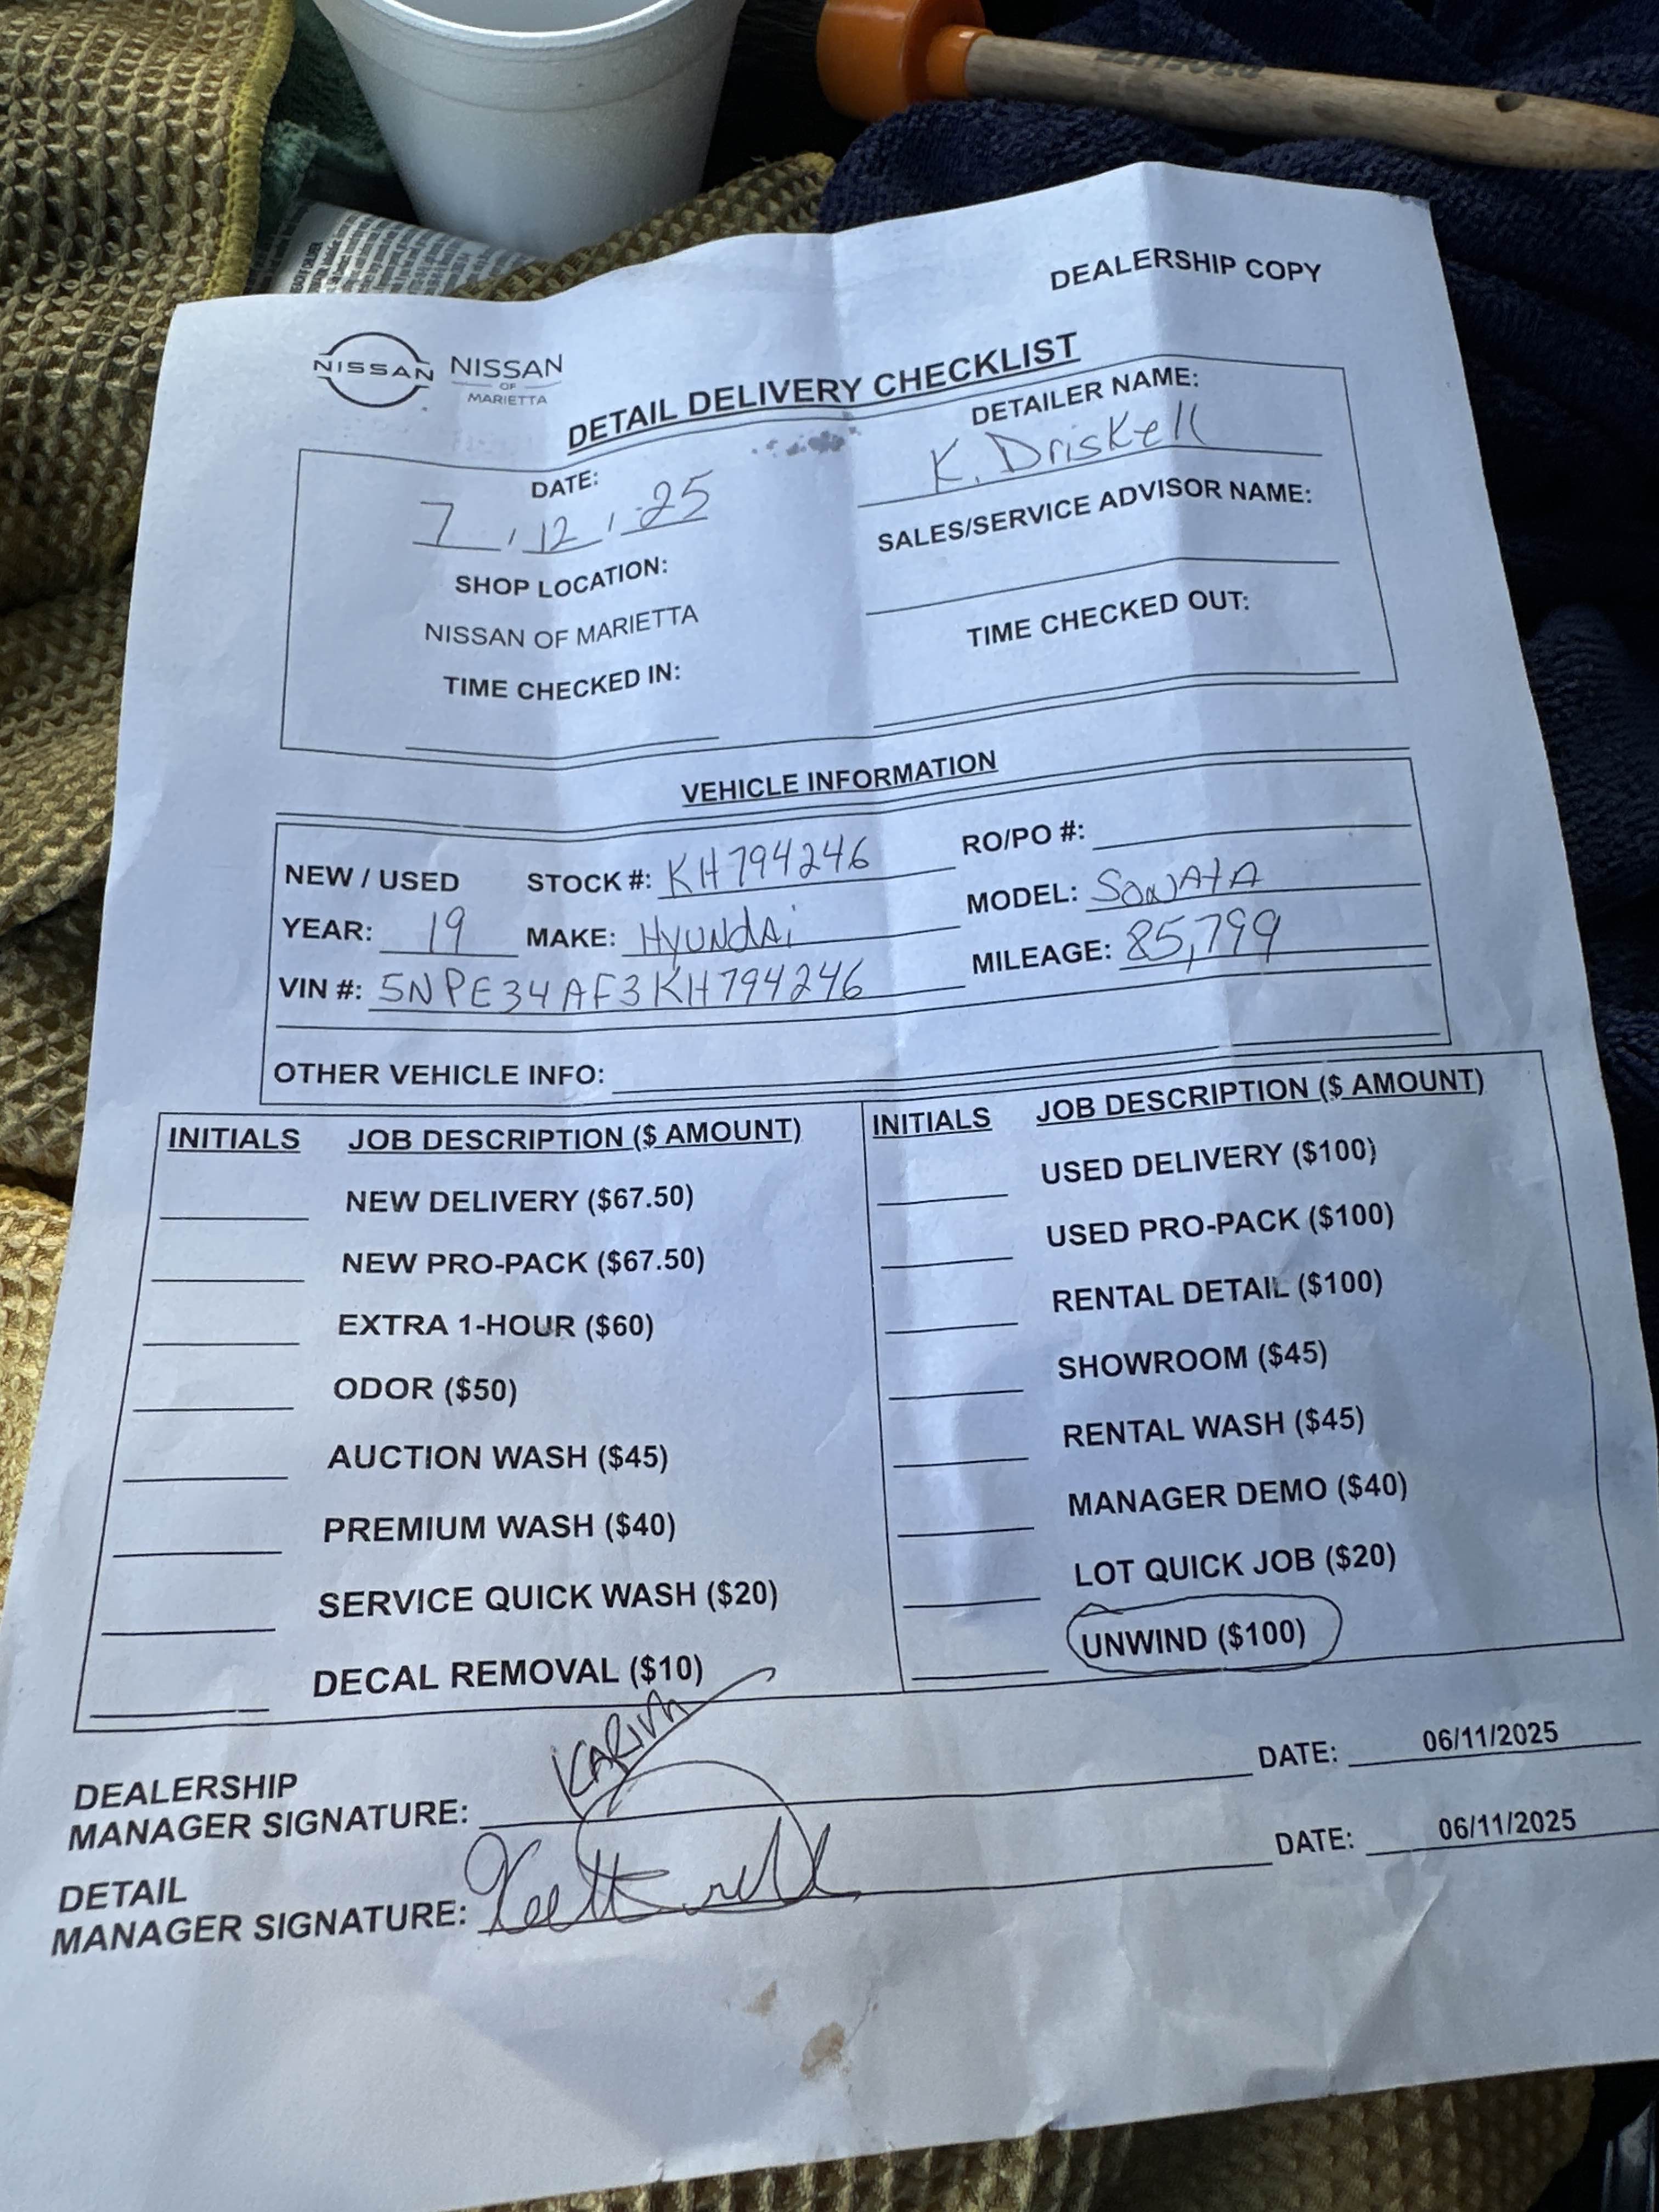 DEALERSHIP COPY
NISSAN NISSAN
OF
MARIETTA
DETAIL DELIVERY CHECKLIST
DATE:
7 / 12 / 25
SHOP LOCATION:
NISSAN OF MARIETTA
TIME CHECKED IN:
DETAILER NAME:
K. Driskell
SALES/SERVICE ADVISOR NAME:
TIME CHECKED OUT:
VEHICLE INFORMATION
NEW / USED STOCK #: KH794246 RO/PO #:
YEAR: 19 MAKE: HYUNDAi MODEL: SONATA
VIN #: 5NPE34AF3KH794246 MILEAGE: 85,799
OTHER VEHICLE INFO:
INITIALS JOB DESCRIPTION ($ AMOUNT)
NEW DELIVERY ($67.50)
NEW PRO-PACK ($67.50)
EXTRA 1-HOUR ($60)
ODOR ($50)
AUCTION WASH ($45)
PREMIUM WASH ($40)
SERVICE QUICK WASH ($20)
DECAL REMOVAL ($10)
INITIALS JOB DESCRIPTION ($ AMOUNT)
USED DELIVERY ($100)
USED PRO-PACK ($100)
RENTAL DETAIL ($100)
SHOWROOM ($45)
RENTAL WASH ($45)
MANAGER DEMO ($40)
LOT QUICK JOB ($20)
UNWIND ($100)
DEALERSHIP
MANAGER SIGNATURE: KARIM DATE: 06/11/2025
DETAIL
MANAGER SIGNATURE: DATE: 06/11/2025